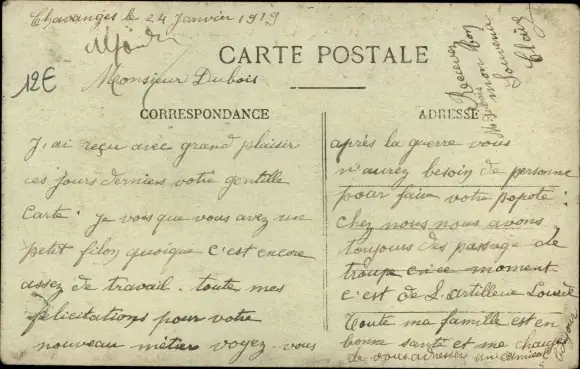 Chavanges le 24 Janvier 1919
12€
CARTE POSTALE
Monsieur Dubois
CORRESPONDANCE
J'ai reçu avec grand plaisir
ces jours derniers votre gentille
Carte. Je vois que vous avez un
petit filon quoique c'est encore
assez de travail. toute mes
félicitations pour votre
nouveau métier voyez-vous
ADRESSE
après la guerre vous
n'aurez besoin de personne
pour faire votre popote:
chez nous nous avons
toujours des passage de
troupe en ce moment
c'est de L'artillerie Lourde
Toute ma famille est en
bonne santé et me charge
de vous adresser un amical
bonjour
Recevez
mon bon
Souvenir
Claire